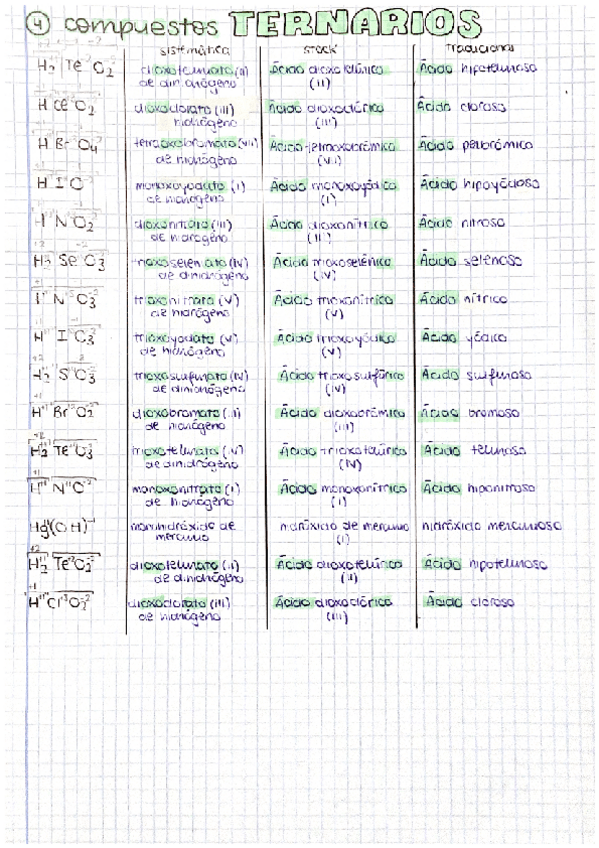 4 compuestos TERNARIOS
sistemática stock Tradicional
H2 Te O2 dioxotelurato (II) Ácido dioxotelúrico Ácido hipoteluroso
de dihidrógeno (II)
H Cl O2 dioxoclorato (III) Ácido dioxoclórico Ácido cloroso
hidrógeno (III)
H Br O4 tetraoxobromato (VII) Ácido tetraoxobrómico Ácido perbrómico
de hidrógeno (VII)
H I O monoxoyodato (I) Ácido monoxoyódico Ácido hipoyodoso
de hidrógeno (I)
H N O2 dioxonitrato (III) Ácido dioxonítrico Ácido nitroso
de hidrógeno (III)
H2 Se O3 trioxoseleniato (IV) Ácido trioxoselénico Ácido selenoso
de dihidrógeno (IV)
H N O3 trioxonitrato (V) Ácido trioxonítrico Ácido nítrico
de hidrógeno (V)
H I O3 trioxoyodato (V) Ácido trioxoyódico Ácido yódico
de hidrógeno (V)
H2 S O3 trioxosulfurato (IV) Ácido trioxosulfúrico Ácido sulfuroso
de dihidrógeno (IV)
H Br O2 dioxobromato (III) Ácido dioxobrómico Ácido bromoso
de hidrógeno (III)
H2 Te O3 trioxotelurato (IV) Ácido trioxotelúrico Ácido teluroso
de dihidrógeno (IV)
H N O monoxonitrato (I) Ácido monoxonítrico Ácido hiponitroso
de hidrógeno (I)
Hg(OH) monohidróxido de hidróxido de mercurio hidróxido mercurioso
mercurio (I)
H2 Te O2 dioxotelurato (II) Ácido dioxotelúrico Ácido hipoteluroso
de dihidrógeno (II)
H Cl O2 dioxoclorato (III) Ácido dioxoclórico Ácido cloroso
de hidrógeno (III)